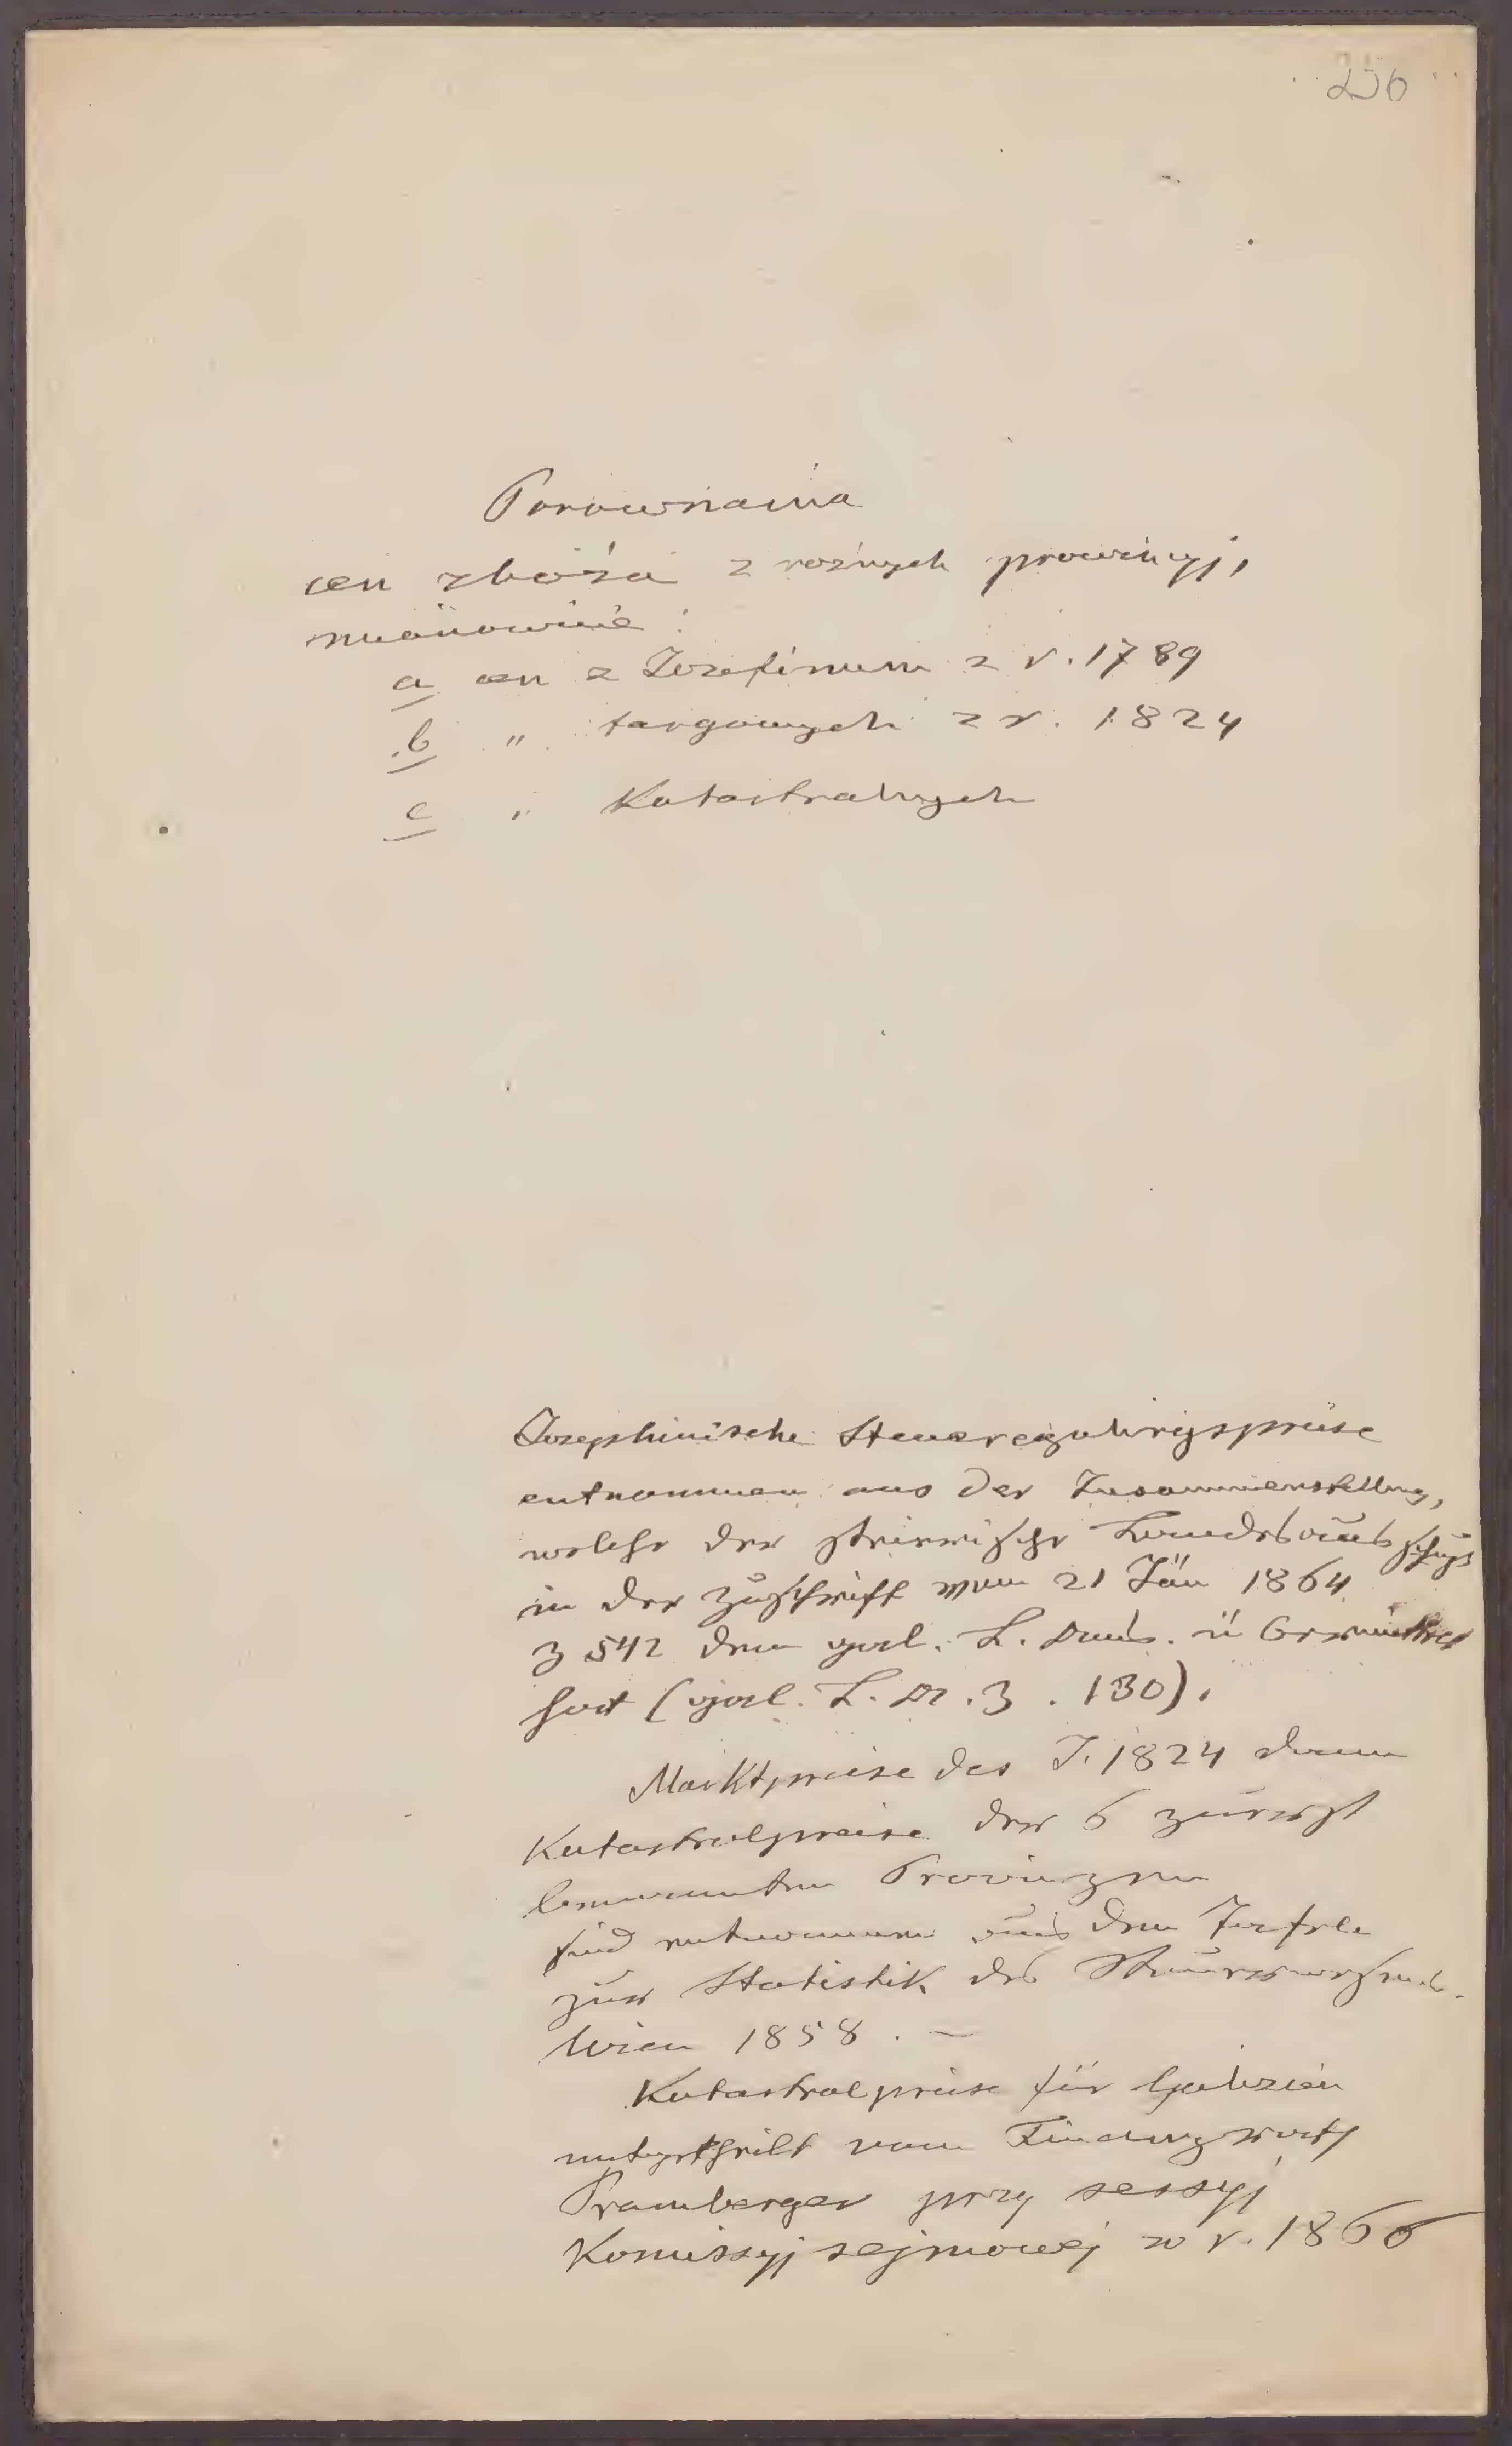 256
Porównania
cen zboża z rożnych prowincyj,
mianowicie:
a cen z Jozefinum z r. 1789
b " targowych z r. 1824
c " Katastralnych
Josephinische Steuerregulirungspreise
entnommen aus der Zusammenstellung,
welche der steirische Landesausschuß
in der Zuschrift vom 21 Jän 1864
Z 542 dem gal. L. Aussch. ü
hat (gal. L. A. Z. 130).
Marktpreise des J. 1824 dann
Katastralpreise der 6 zuerst
benannten Provinzen
sind entnommen aus den Tafeln
zur Statistik des Steuerwesens.
Wien 1858. —
Katastralpreise für Galizien
mitgetheilt vom Finanzrath
Pramberger przy sessyj
Komissyj sejmowej w r. 1866